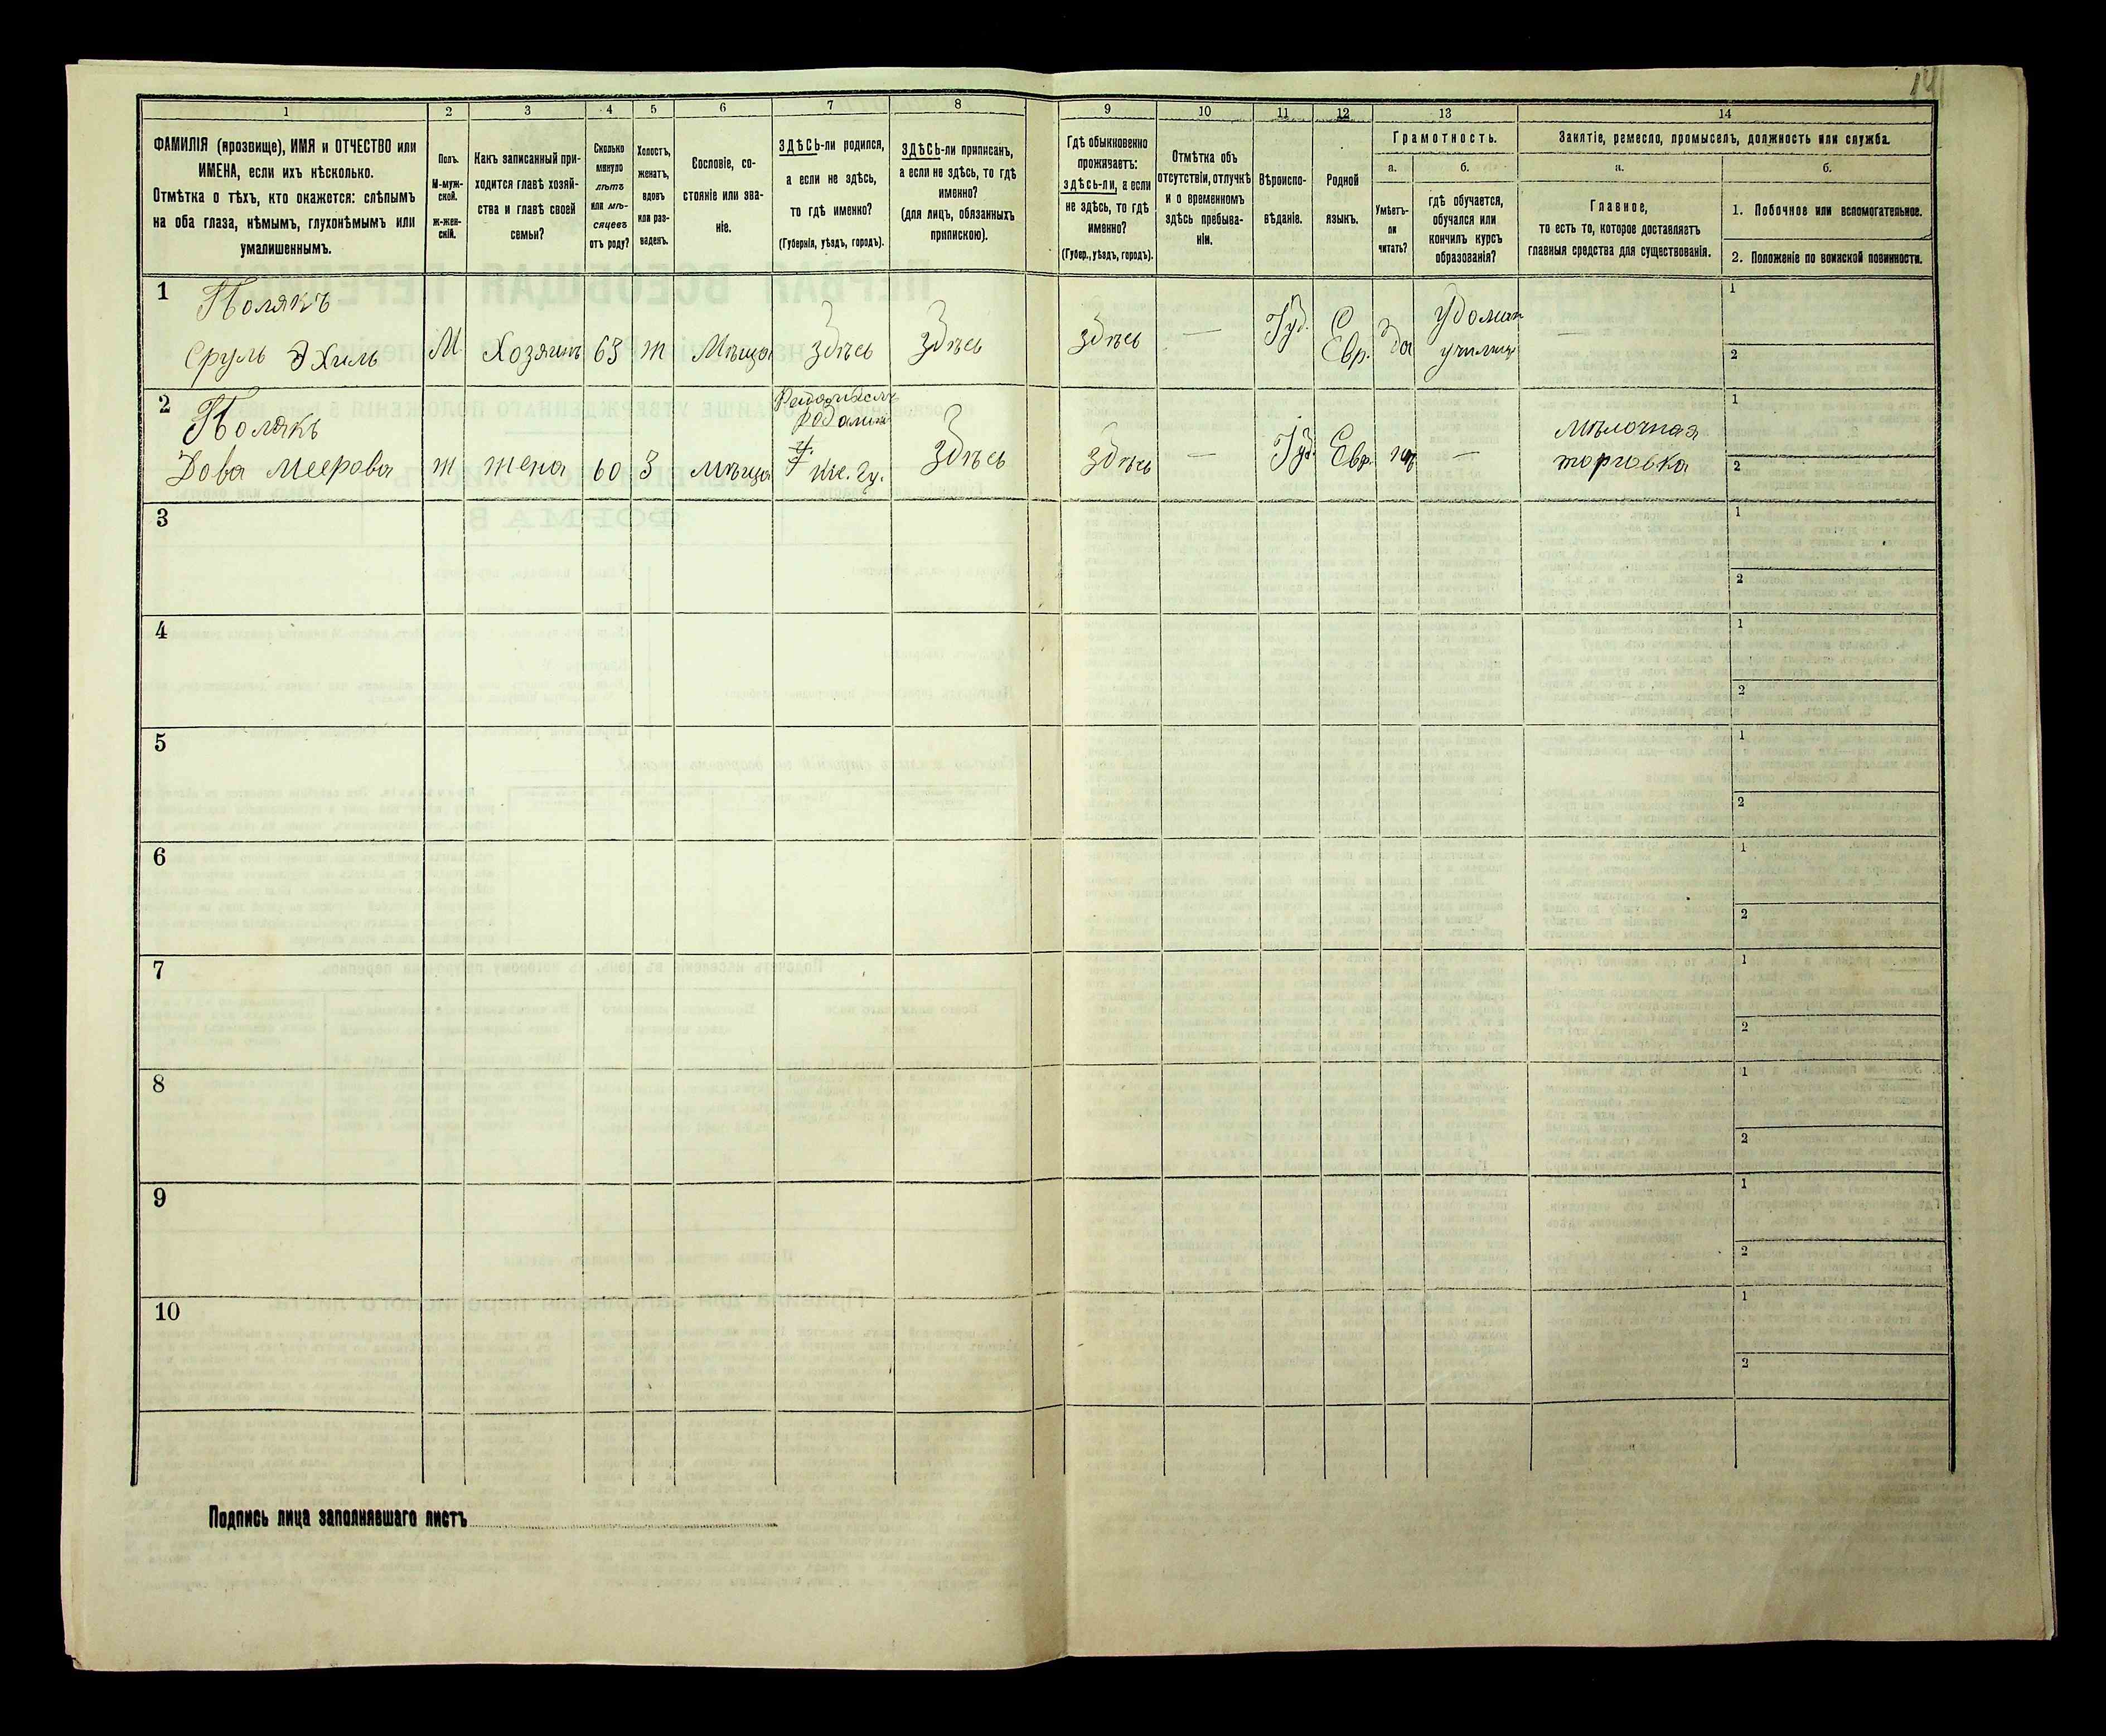 14
1 2 3 4 5 6 7 8 9 10 11 12 13 14
ФАМИЛІЯ (прозвище), ИМЯ и ОТЧЕСТВО или
ИМЕНА, если ихъ нѣсколько.
Отмѣтка о тѣхъ, кто окажется: слѣпымъ
на оба глаза, нѣмымъ, глухонѣмымъ или
умалишеннымъ.
Полъ.
М-муж-
ской.
Ж-жен-
скій.
Какъ записанный при-
ходится главѣ хозяй-
ства и главѣ своей
семьи?
Сколько
минуло
лѣтъ
или мѣ-
сяцевъ
отъ роду?
Холостъ,
женатъ,
вдовъ
или раз-
веденъ.
Сословіе, со-
стояніе или зва-
ніе.
ЗДѢСЬ-ли родился,
а если не здѣсь,
то гдѣ именно?
(Губернія, уѣздъ, городъ).
ЗДѢСЬ-ли приписанъ,
а если не здѣсь, то гдѣ
именно?
(для лицъ, обязанныхъ
припискою).
Гдѣ обыкновенно
проживаетъ:
здѣсь-ли, а если
не здѣсь, то гдѣ
именно?
(Губер., уѣздъ, городъ).
Отмѣтка объ
отсутствіи, отлучкѣ
и о временномъ
здѣсь пребыва-
ніи.
Вѣроиспо-
вѣданіе.
Родной
языкъ.
Грамотность.
а.
Умѣетъ-
ли
читать?
б.
гдѣ обучается,
обучался или
кончилъ курсъ
образованія?
Занятіе, ремесло, промыселъ, должность или служба.
а.
Главное,
то есть то, которое доставляетъ
главныя средства для существованія.
б.
1. Побочное или вспомогательное.
2. Положеніе по воинской повинности.
1
Полякъ
Сруль Эхиль М Хозяинъ 63 ж Мѣща Здѣсь Здѣсь Здѣсь — Іуд. Евр. да училищ —
1
2
2
Полякъ
Дова Меерова ж жена 60 З мѣща Здѣсь Здѣсь — Іуд. Евр. —
мѣлочная
торговка
1
2
3
1
2
4
1
2
5
1
2
6
1
2
7
1
2
8
1
2
9
1
2
10
1
2
Подпись лица заполнявшаго листъ